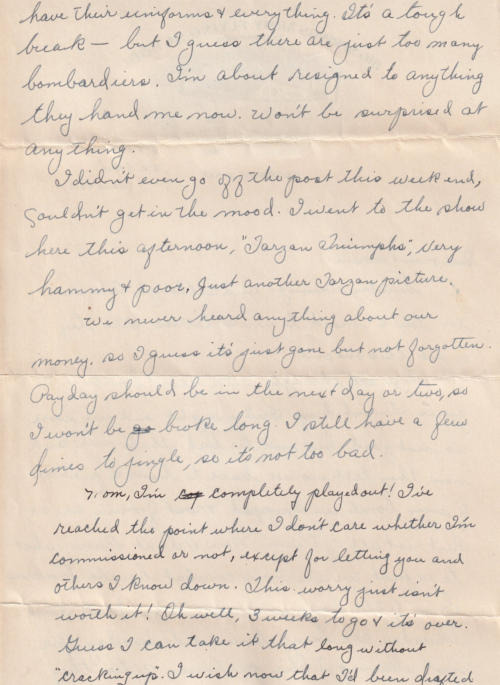 have their uniforms & everything. It's a tough
break — but I guess there are just too many
bombardiers. I'm about resigned to anything
they hand me now. Won't be surprised at
anything.
I didn't even go off the post this week end,
Couldn't get in the mood. I went to the show
here this afternoon, "Tarzan Triumphs", very
hammy & poor. Just another Tarzan picture.
We never heard anything about our
money. so I guess it's just gone but not forgotten.
Payday should be in the next day or two, so
I won't be go broke long. I still have a few
dimes to jingle, so it's not too bad.
Mom, I'm completely played out! I've
reached the point where I don't care whether I'm
commissioned or not, except for letting you and
others I know down. This worry just isn't
worth it! Oh well, 3 weeks to go & it's over.
Guess I can take it that long without
"cracking up". I wish now that I'd been drafted